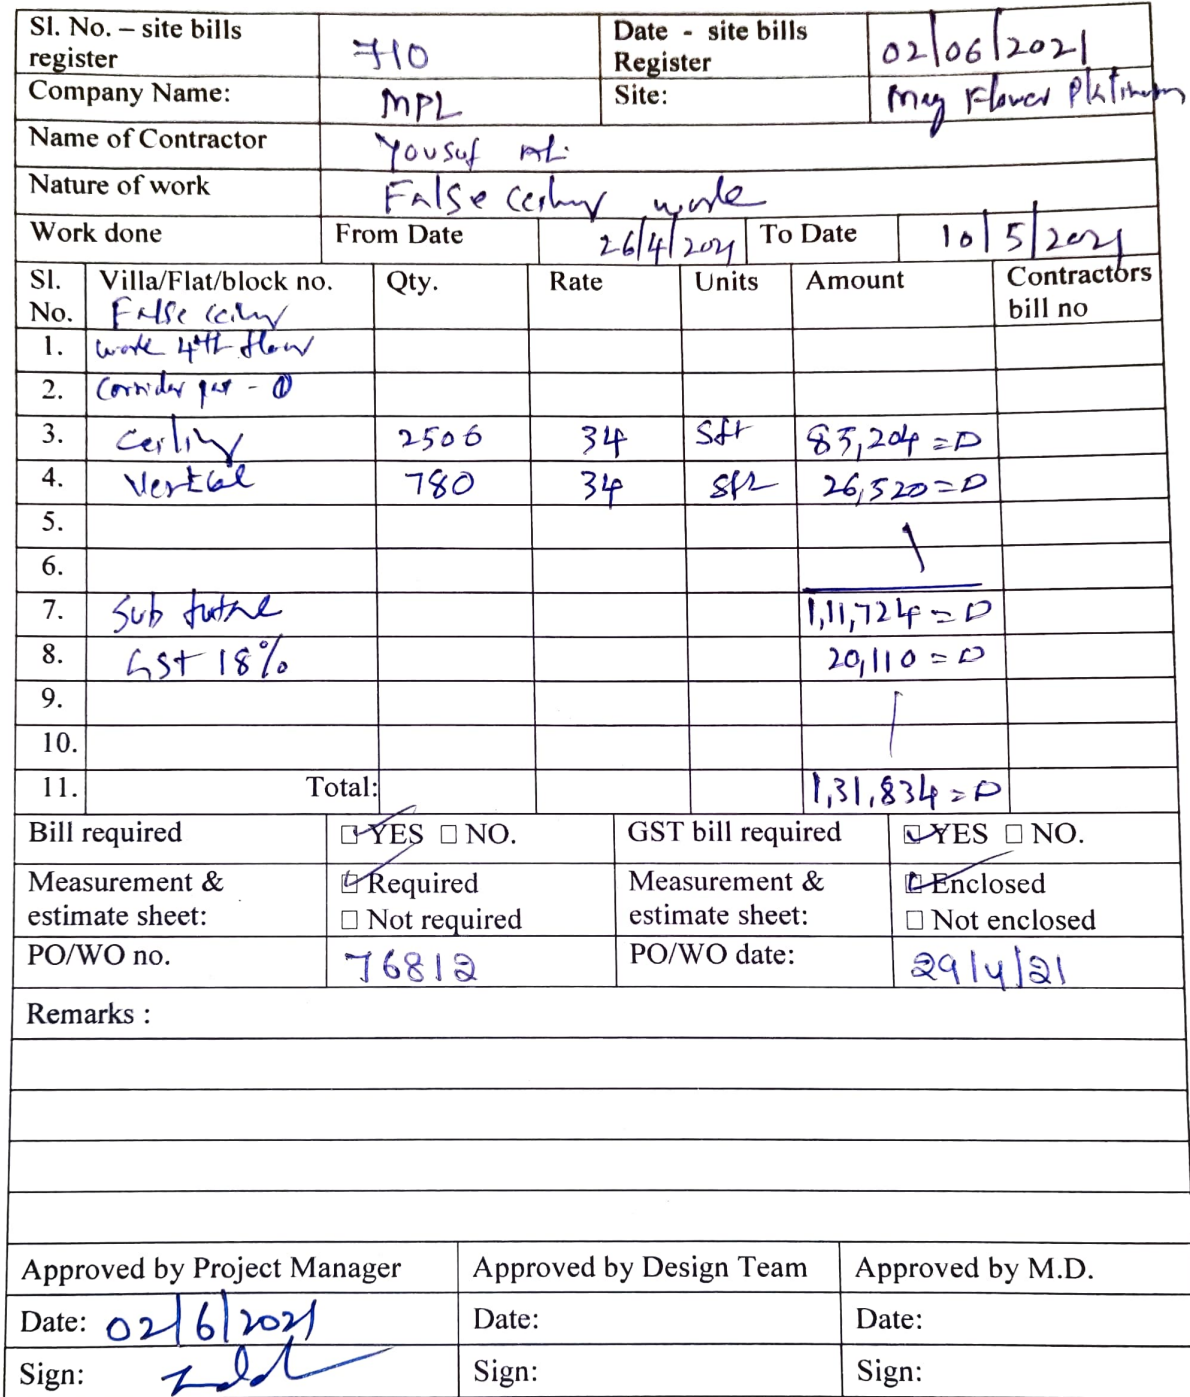 Sl. No. – site bills register 710 Date - site bills Register 02/06/2021
Company Name: MPL Site: May Flower Platinum
Name of Contractor Yousuf Ali
Nature of work False ceiling work
Work done From Date 26/4/2021 To Date 10/5/2021
Sl. No. Villa/Flat/block no. Qty. Rate Units Amount Contractors bill no
False ceiling
1. work 4th floor
2. Corridor - 1
3. Ceiling 2506 34 Sft 85,204=0
4. Vertical 780 34 Sft 26,520=0
5.
6.
7. Sub total 1,11,724=0
8. GST 18% 20,110=0
9.
10.
11. Total: 1,31,834=0
Bill required YES NO. GST bill required YES NO.
Measurement & estimate sheet: Required Measurement & estimate sheet: Enclosed
Not required Not enclosed
PO/WO no. 76812 PO/WO date: 29/4/21
Remarks :
Approved by Project Manager Approved by Design Team Approved by M.D.
Date: 02/6/2021 Date: Date:
Sign: Sign: Sign: